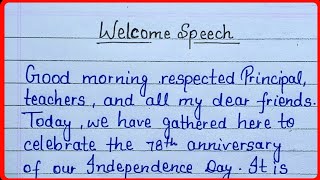 Welcome Speech
Good morning respected Principal,
teachers, and all my dear friends.
Today, we have gathered here to
celebrate the 78th anniversary
of our Independence Day. It is